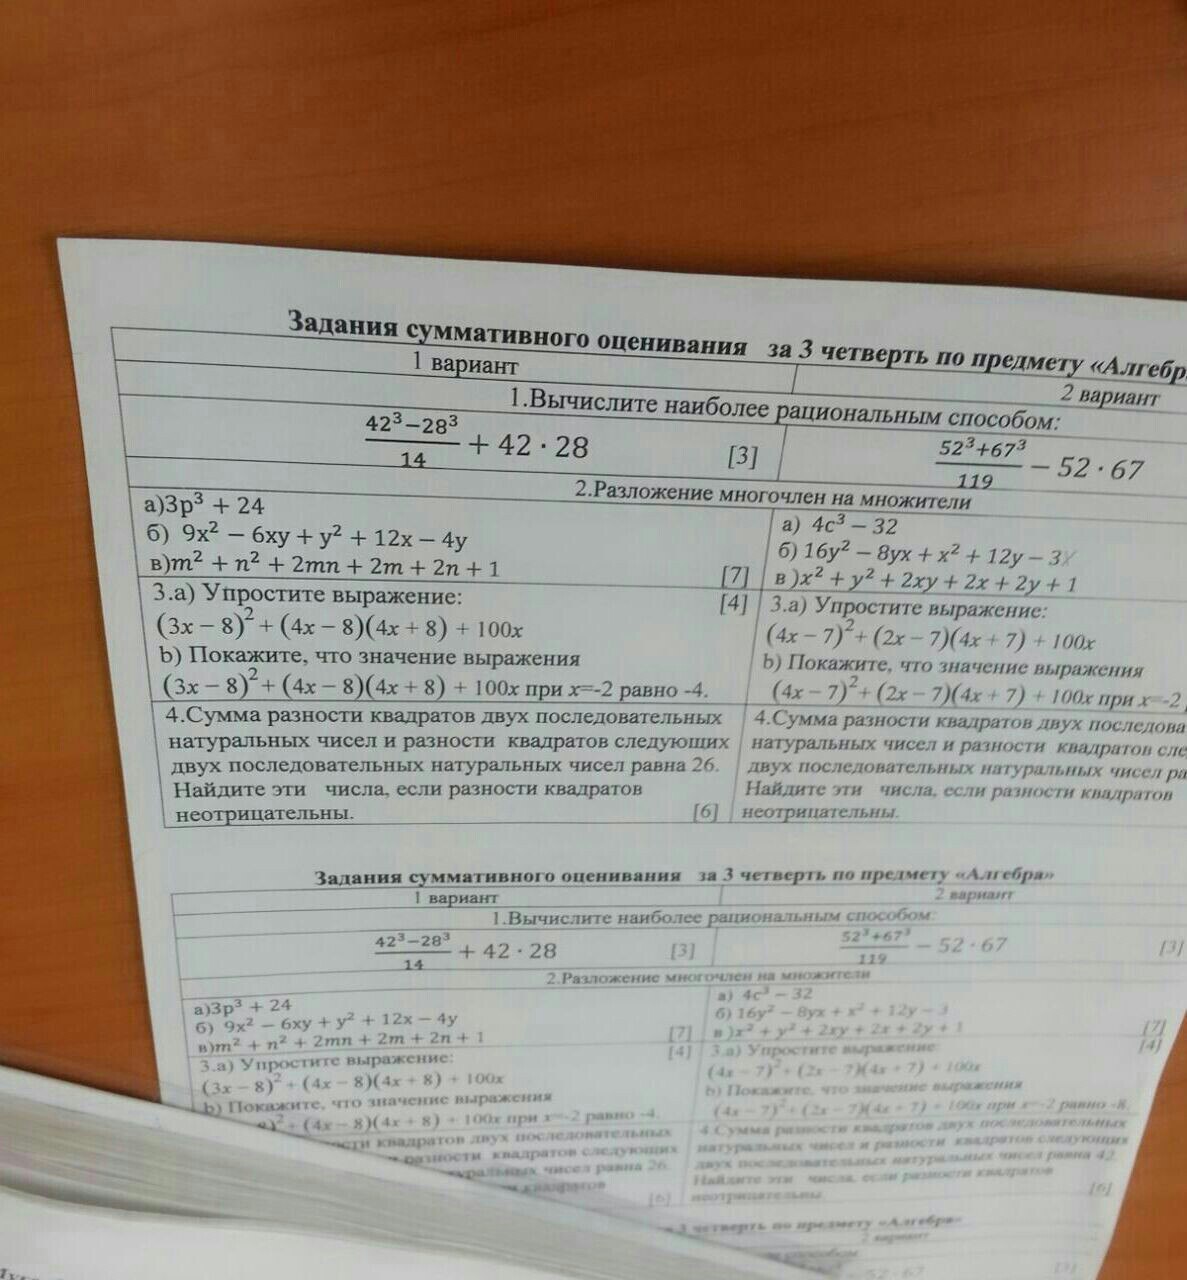 Задания суммативного оценивания за 3 четверть по предмету «Алгебр
1 вариант
2 вариант
1.Вычислите наиболее рациональным способом:
42³−28³/14 + 42 · 28 [3]
52³+67³/119 − 52 · 67
2.Разложение многочлен на множители
а)3p³ + 24
б) 9x² − 6xy + y² + 12x − 4y
в)m² + n² + 2mn + 2m + 2n + 1 [7]
а) 4c³ − 32
б) 16y² − 8yx + x² + 12y − 3x
в )x² + y² + 2xy + 2x + 2y + 1
3.а) Упростите выражение: [4]
(3x − 8)² + (4x − 8)(4x + 8) + 100x
b) Покажите, что значение выражения
(3x − 8)² + (4x − 8)(4x + 8) + 100x при x=-2 равно -4.
3.а) Упростите выражение:
(4x − 7)² + (2x − 7)(4x + 7) + 100x
b) Покажите, что значение выражения
(4x − 7)² + (2x − 7)(4x + 7) + 100x при x=-2
4.Сумма разности квадратов двух последовательных
натуральных чисел и разности квадратов следующих
двух последовательных натуральных чисел равна 26.
Найдите эти числа, если разности квадратов
неотрицательны. [6]
4.Сумма разности квадратов двух последова
натуральных чисел и разности квадратов сле
двух последовательных натуральных чисел ра
Найдите эти числа, если разности квадратов
неотрицательны.
Задания суммативного оценивания за 3 четверть по предмету «Алгебра»
1 вариант
2 вариант
1.Вычислите наиболее рациональным способом:
42³−28³/14 + 42 · 28 [3]
52³+67³/119 − 52 · 67 [3]
2.Разложение многочлен на множители
а)3p³ + 24
б) 9x² − 6xy + y² + 12x − 4y
в)m² + n² + 2mn + 2m + 2n + 1 [7]
а) 4c³ − 32
б) 16y² − 8yx + x² + 12y − 3
в )x² + y² + 2xy + 2x + 2y + 1 [7]
3.а) Упростите выражение: [4]
(3x − 8)² + (4x − 8)(4x + 8) + 100x
b) Покажите, что значение выражения
)² + (4x − 8)(4x + 8) + 100x при x=-2 равно -4.
3.а) Упростите выражение: [4]
(4x − 7)² + (2x − 7)(4x + 7) + 100x
b) Покажите, что значение выражения
(4x − 7)² + (2x − 7)(4x + 7) + 100x при x=-2 равно -8.
ости квадратов двух последовательных
разности квадратов следующих
туральных чисел равна 26.
квадратов
[6]
4.Сумма разности квадратов двух последовательных
натуральных чисел и разности квадратов следующих
двух последовательных натуральных чисел равна 42.
Найдите эти числа, если разности квадратов
неотрицательны. [6]
3 четверть по предмету «Алгебра»
2 вариант
способом
− 52 · 67 [3]